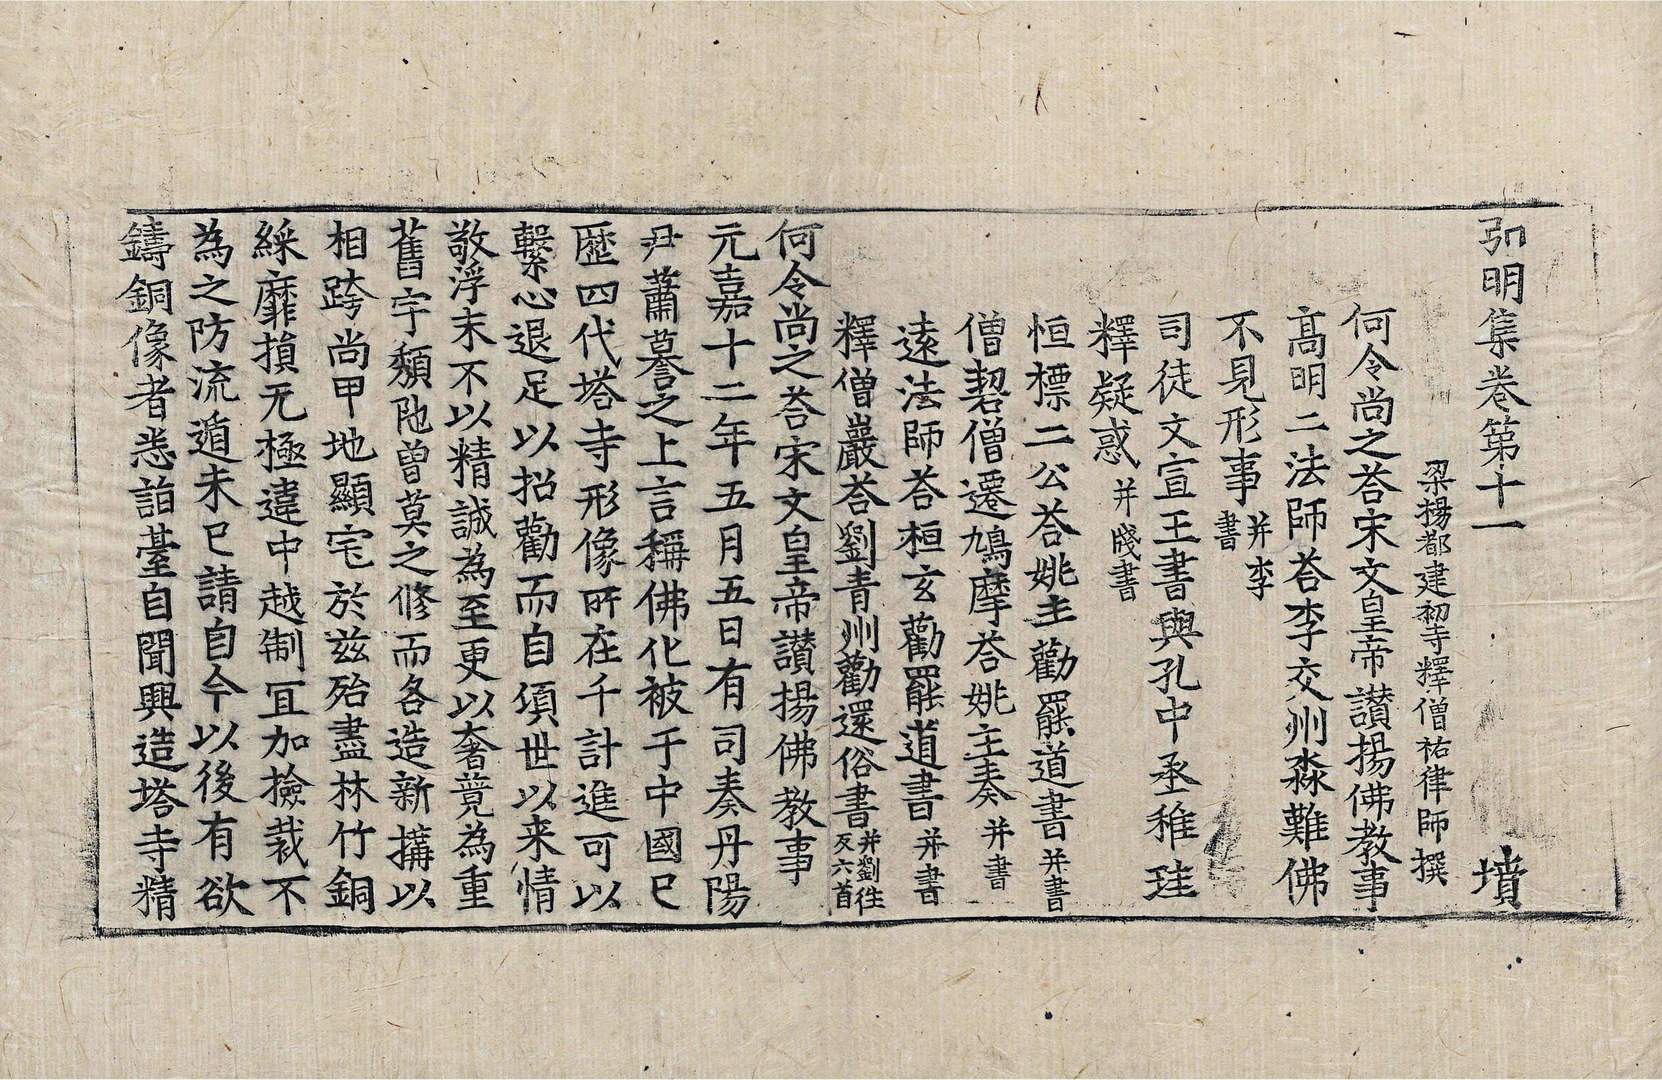 弘明集卷第十一　墳
梁揚都建初寺釋僧祐律師撰
何令尚之荅宋文皇帝讃揚佛教事
高明二法師荅李交州淼難佛
不見形事并李書
司徒文宣王書與孔中丞稚珪
釋疑惑并牋書
恒標二公荅姚主勸罷道書并書
僧䂮僧遷鳩摩荅姚主奏并書
遠法師荅桓玄勸罷道書并書
釋僧巖荅劉青州勸還俗書并劉往反六首
何令尚之荅宋文皇帝讃揚佛教事
元嘉十二年五月五日有司奏丹陽
尹蕭謩之上言稱佛化被于中國已
歷四代塔寺形像所在千計進可以
繫心退足以招勸而自頃世以来情
敬浮末不以精誠為至更以奢競為重
舊宇頹阤曾莫之修而各造新搆以
相跨尚甲地顯宅於兹殆盡林竹銅
綵靡損无極違中越制冝加撿裁不
為之防流遁未已請自今以後有欲
鑄銅像者悉詣臺自聞興造塔寺精